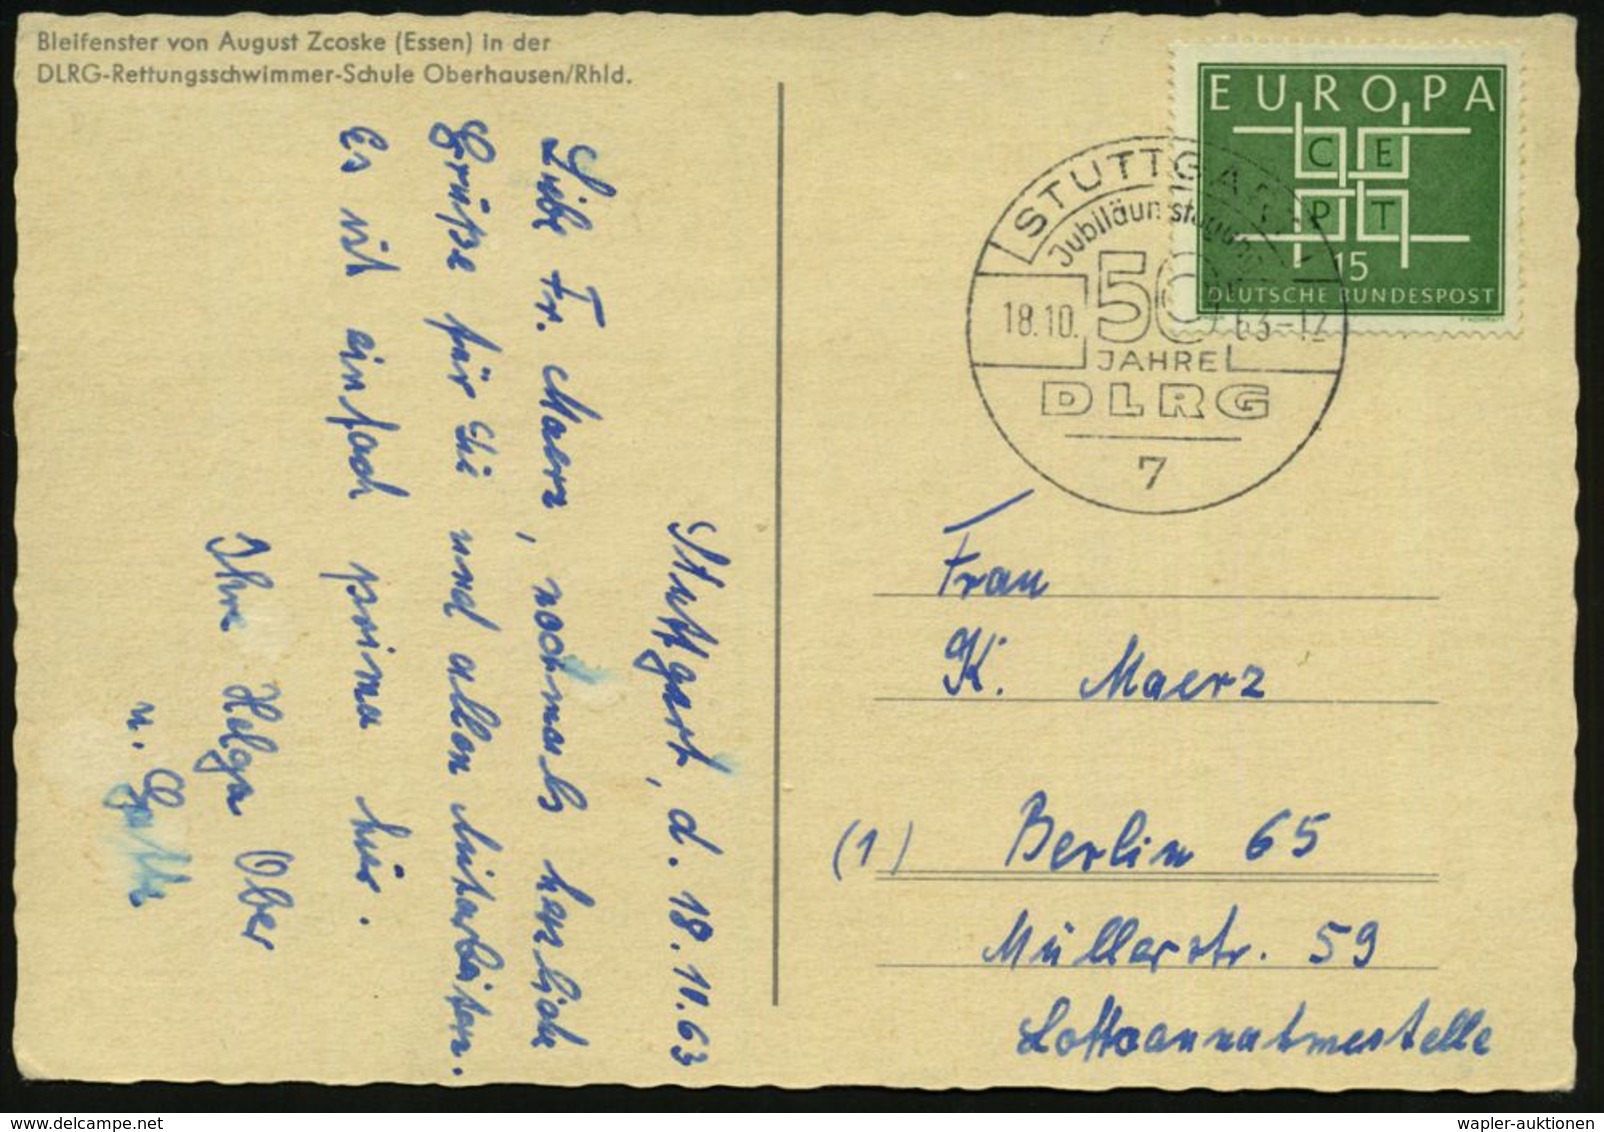 Bleifenster von August Zcoske (Essen) in der
DLRG-Rettungsschwimmer-Schule Oberhausen/Rhld.
Stuttgart, d. 18.10.63
Liebe Fr. Maerz, nochmals herzliche
Grüße für Sie und allen Mitarbeitern.
Es ist einfach prima hier.
Ihre Helga Ober
u. Gatte
EUROPA
CEPT
15
DEUTSCHE BUNDESPOST
STUTTGART
Jubiläumstagung
50
18.10. 63-12
JAHRE
DLRG
7
Frau
K. Maerz
(1) Berlin 65
Müllerstr. 59
Lottoannahmestelle
wapler-auktionen